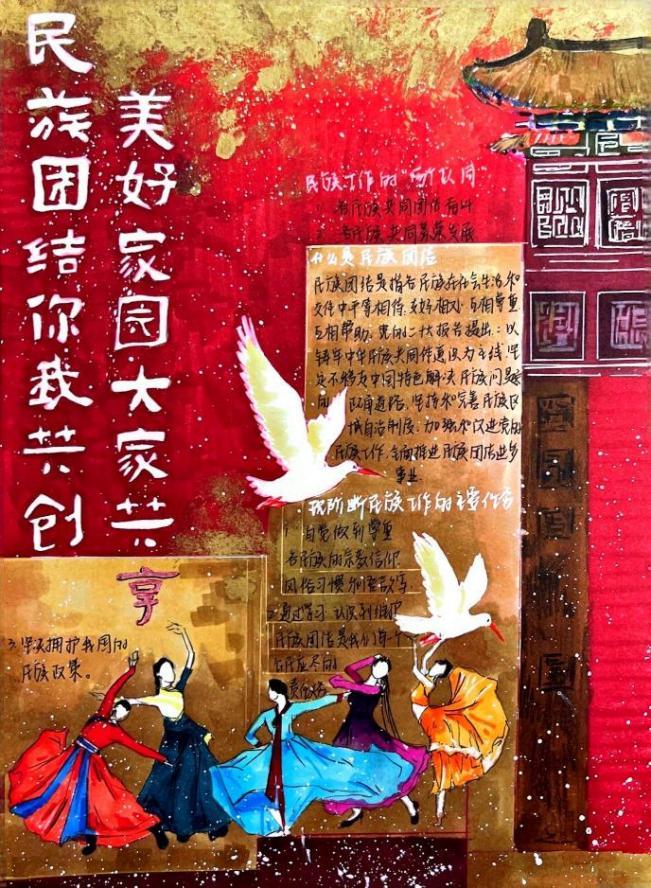 民族团结你我共创
美好家园大家共享
民族工作的“两个共同”
1. 各民族共同团结奋斗
2. 各民族共同繁荣发展
什么是民族团结
民族团结是指各民族在社会生活和
文化中平等相待、友好相处、互相尊重
互相帮助。党的二十大报告提出：以
铸牢中华民族共同体意识为主线，坚
定不移走中国特色解决民族问题
的正确道路，坚持和完善民族区
域自治制度，加强和改进党的
民族工作，全面推进民族团结进步
事业
现阶段民族工作的主要任务
1 自觉做到尊重
各民族的宗教信仰
风俗习惯和语言文字
2 通过学习，认识到维护
民族团结是我们每一个
公民应尽的
责任
3. 坚决拥护我国的
民族政策。